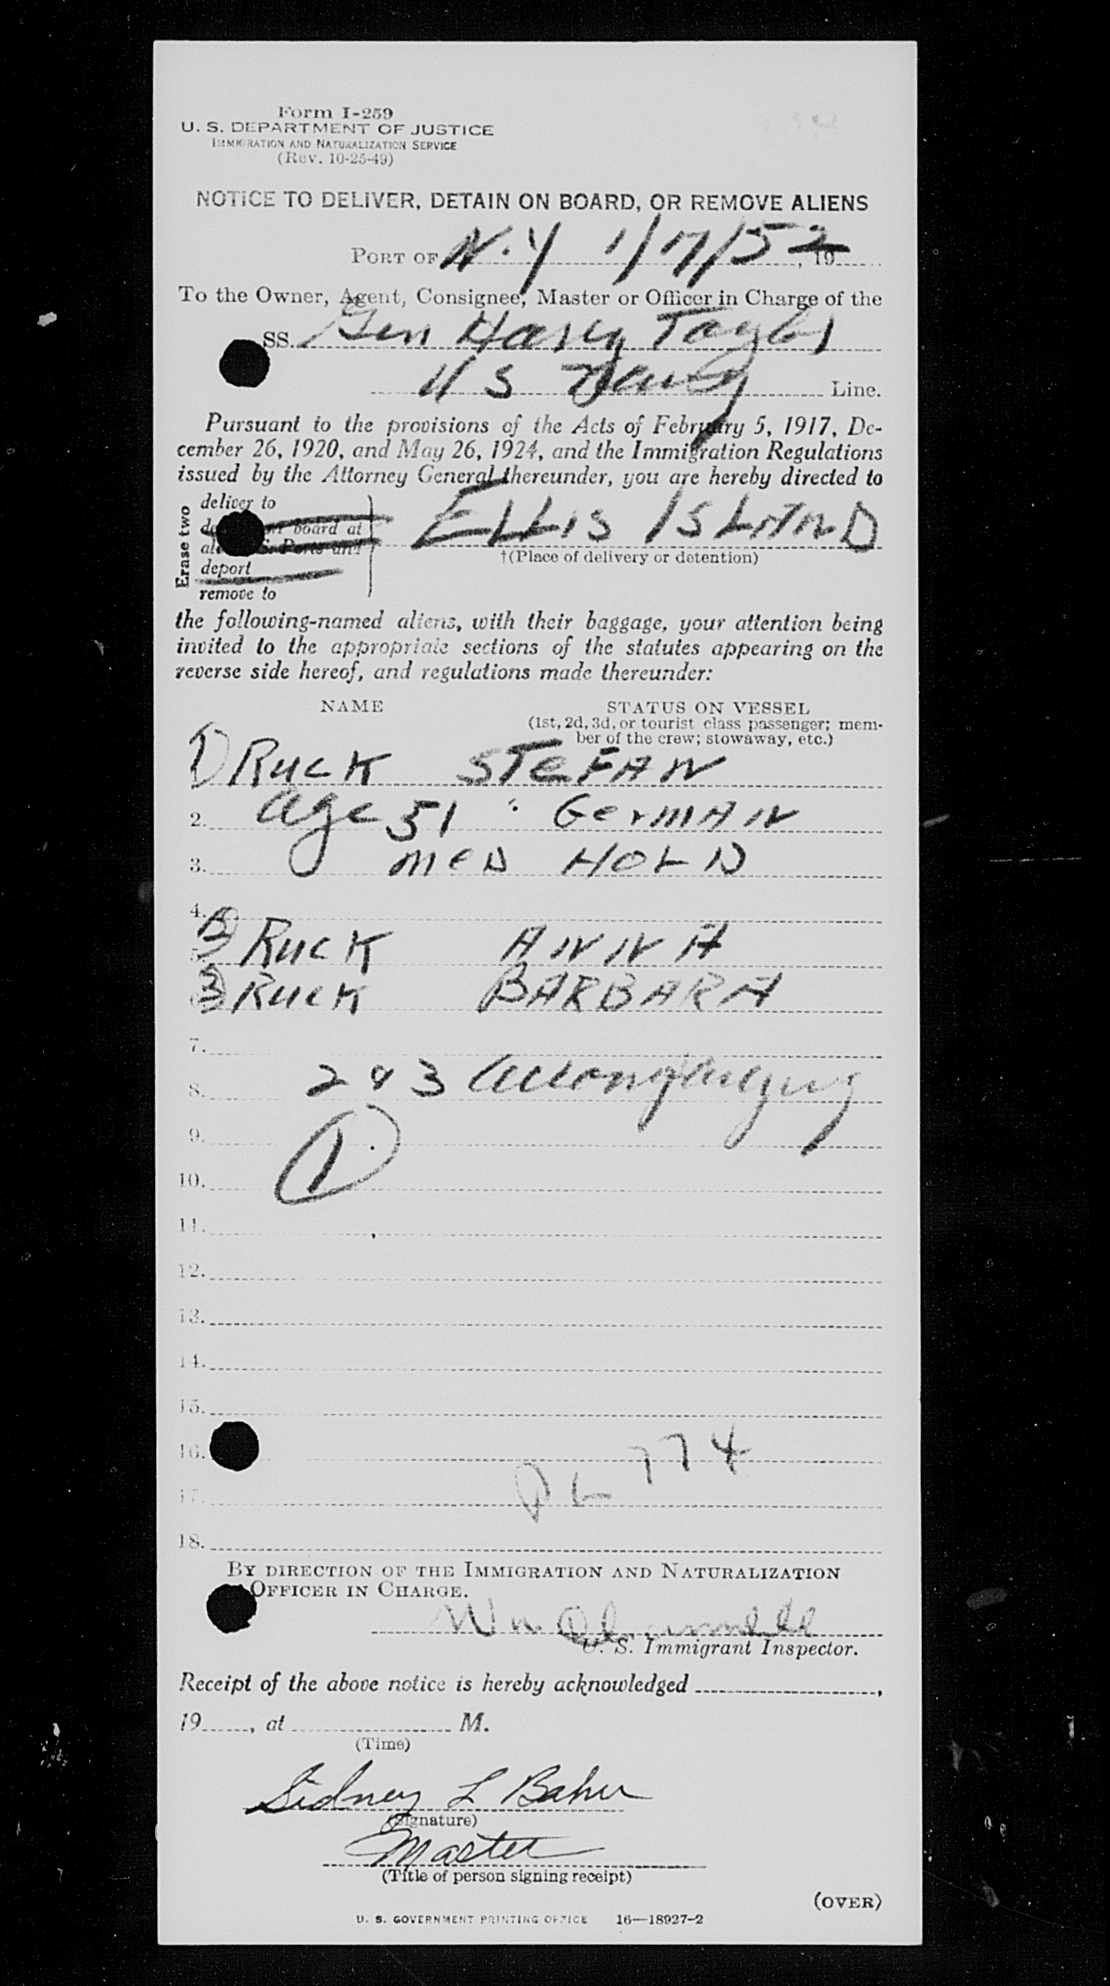 Form I-259
U. S. DEPARTMENT OF JUSTICE
IMMIGRATION AND NATURALIZATION SERVICE
(Rev. 10-25-49)
NOTICE TO DELIVER, DETAIN ON BOARD, OR REMOVE ALIENS
PORT OF N.Y 1/17/52, 19
To the Owner, Agent, Consignee, Master or Officer in Charge of the
SS. Gen Harry Taylor
U S Navy Line.
Pursuant to the provisions of the Acts of February 5, 1917, De-
cember 26, 1920, and May 26, 1924, and the Immigration Regulations
issued by the Attorney General thereunder, you are hereby directed to
Erase two
deliver to
on board at
ELLIS ISLAND
U.S. Ports and
†(Place of delivery or detention)
deport
remove to
the following-named aliens, with their baggage, your attention being
invited to the appropriate sections of the statutes appearing on the
reverse side hereof, and regulations made thereunder:
NAME STATUS ON VESSEL
(1st, 2d, 3d, or tourist class passenger; mem-
ber of the crew; stowaway, etc.)
1) RUCK STEFAN
2. Age 51 GERMAN
3. MED HOLD
4.
2) RUCK ANNA
3) RUCK BARBARA
7.
8. 2 & 3 Accompanying
9.
10. 1
11.
12.
13.
14.
15.
16. 774
17.
18.
BY DIRECTION OF THE IMMIGRATION AND NATURALIZATION
OFFICER IN CHARGE.
Wm
U. S. Immigrant Inspector.
Receipt of the above notice is hereby acknowledged ,
19 , at M.
(Time)
Sidney L Baker
(Signature)
Master
(Title of person signing receipt)
(OVER)
U. S. GOVERNMENT PRINTING OFFICE 16—18927-2